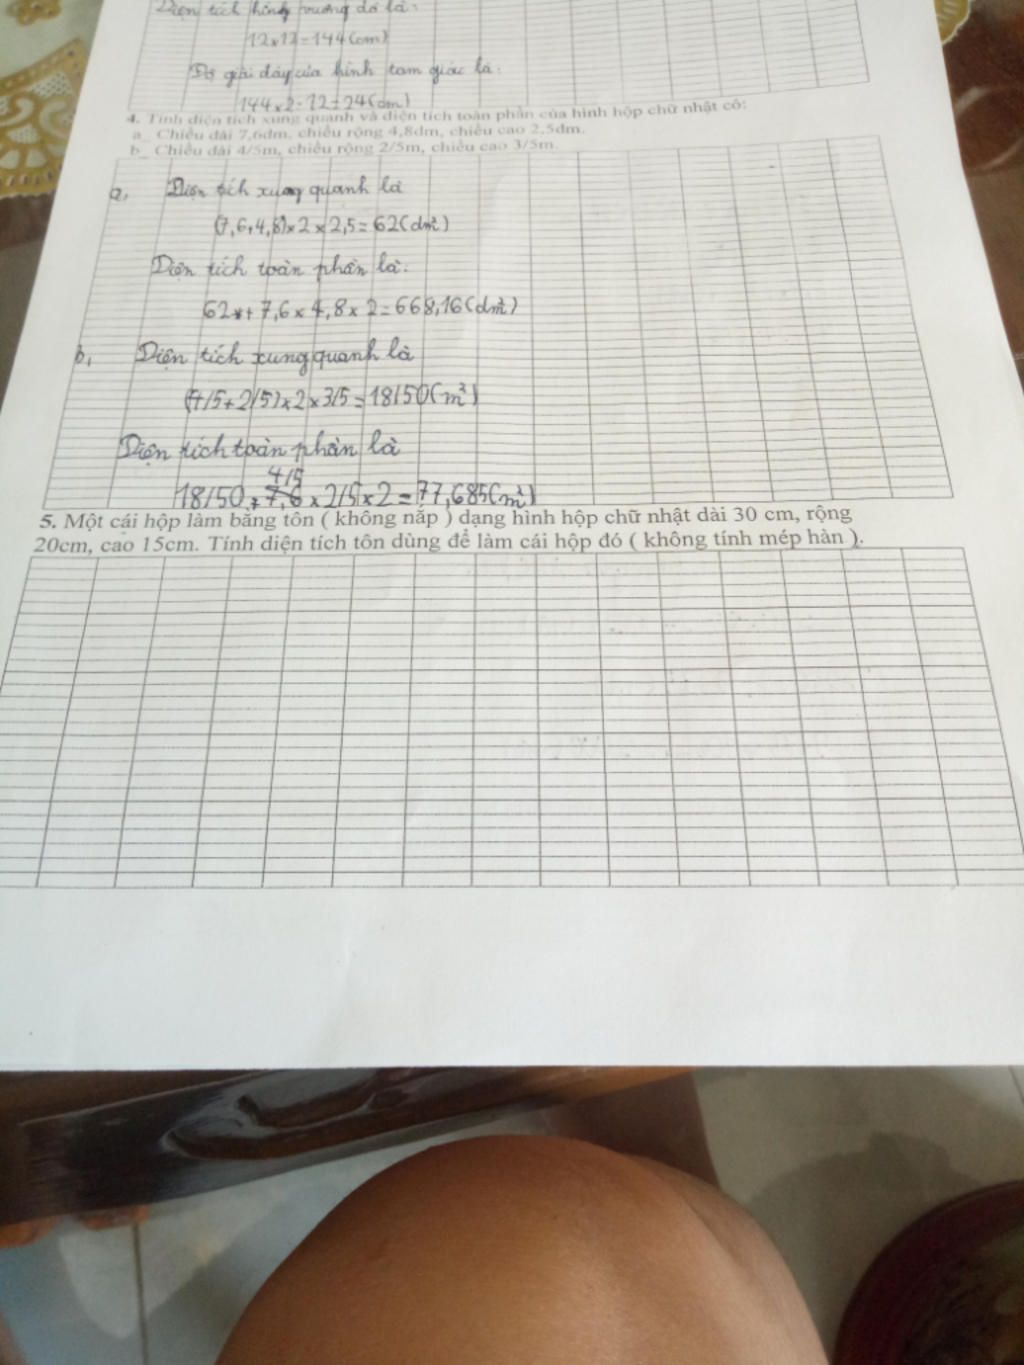 Diện tích hình vuông đó là:
12x12=144(cm)
Độ giài đáy của hình tam giác là:
144x2:12=24(cm)
4. Tính diện tích xung quanh và diện tích toàn phần của hình hộp chữ nhật có:
a_ Chiều dài 7,6dm, chiều rộng 4,8dm, chiều cao 2,5dm.
b_ Chiều dài 4/5m, chiều rộng 2/5m, chiều cao 3/5m.
a, Diện tích xung quanh là
(7,6+4,8)x2x2,5=62(dm²)
Diện tích toàn phần là:
62+7,6x4,8x2=668,16(dm²)
b, Diện tích xung quanh là
(4/5+2/5)x2x3/5=18/50(m²)
Diện tích toàn phần là
18/50+4/5x2/5x2=77,685(m²)
5. Một cái hộp làm bằng tôn ( không nắp ) dạng hình hộp chữ nhật dài 30 cm, rộng
20cm, cao 15cm. Tính diện tích tôn dùng để làm cái hộp đó ( không tính mép hàn ).